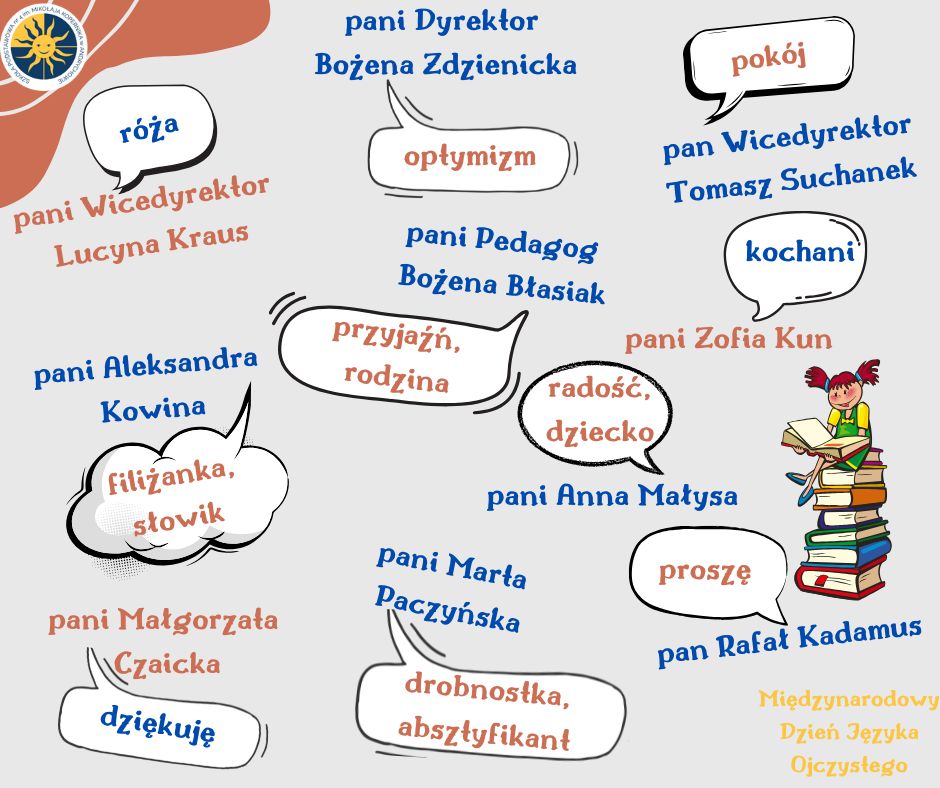 SZKOŁA PODSTAWOWA nr 4 im. MIKOŁAJA KOPERNIKA w ANDRYCHOWIE
pani Dyrektor
Bożena Zdzienicka
optymizm
pokój
pan Wicedyrektor
Tomasz Suchanek
róża
pani Wicedyrektor
Lucyna Kraus
pani Pedagog
Bożena Błasiak
przyjaźń,
rodzina
kochani
pani Zofia Kun
pani Aleksandra
Kowina
filiżanka,
słowik
radość,
dziecko
pani Anna Małysa
proszę
pan Rafał Kadamus
pani Marta
Paczyńska
drobnostka,
absztyfikant
pani Małgorzata
Czaicka
dziękuję
Międzynarodowy
Dzień Języka
Ojczystego